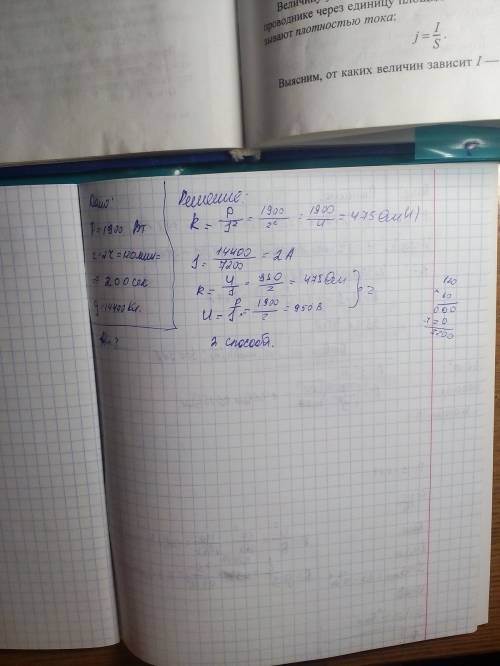 Величину
проводнике через единицу площади
зывают плотностью тока:
j = I/S.
Выясним, от каких величин зависит I —
Дано:
P=1900 Вт
t=2ч=120мин=
=7200 сек
q=14400Кл.
R-?
Решение:
R = P/J² = 1900/2² = 1900/4 = 475 (Ом)
J = 14400/7200 = 2 А
R = U/J = 950/2 = 475 Ом
U = P/J = 1900/2 = 950 В
} 2
2 способа.
120
60
000
720
7200